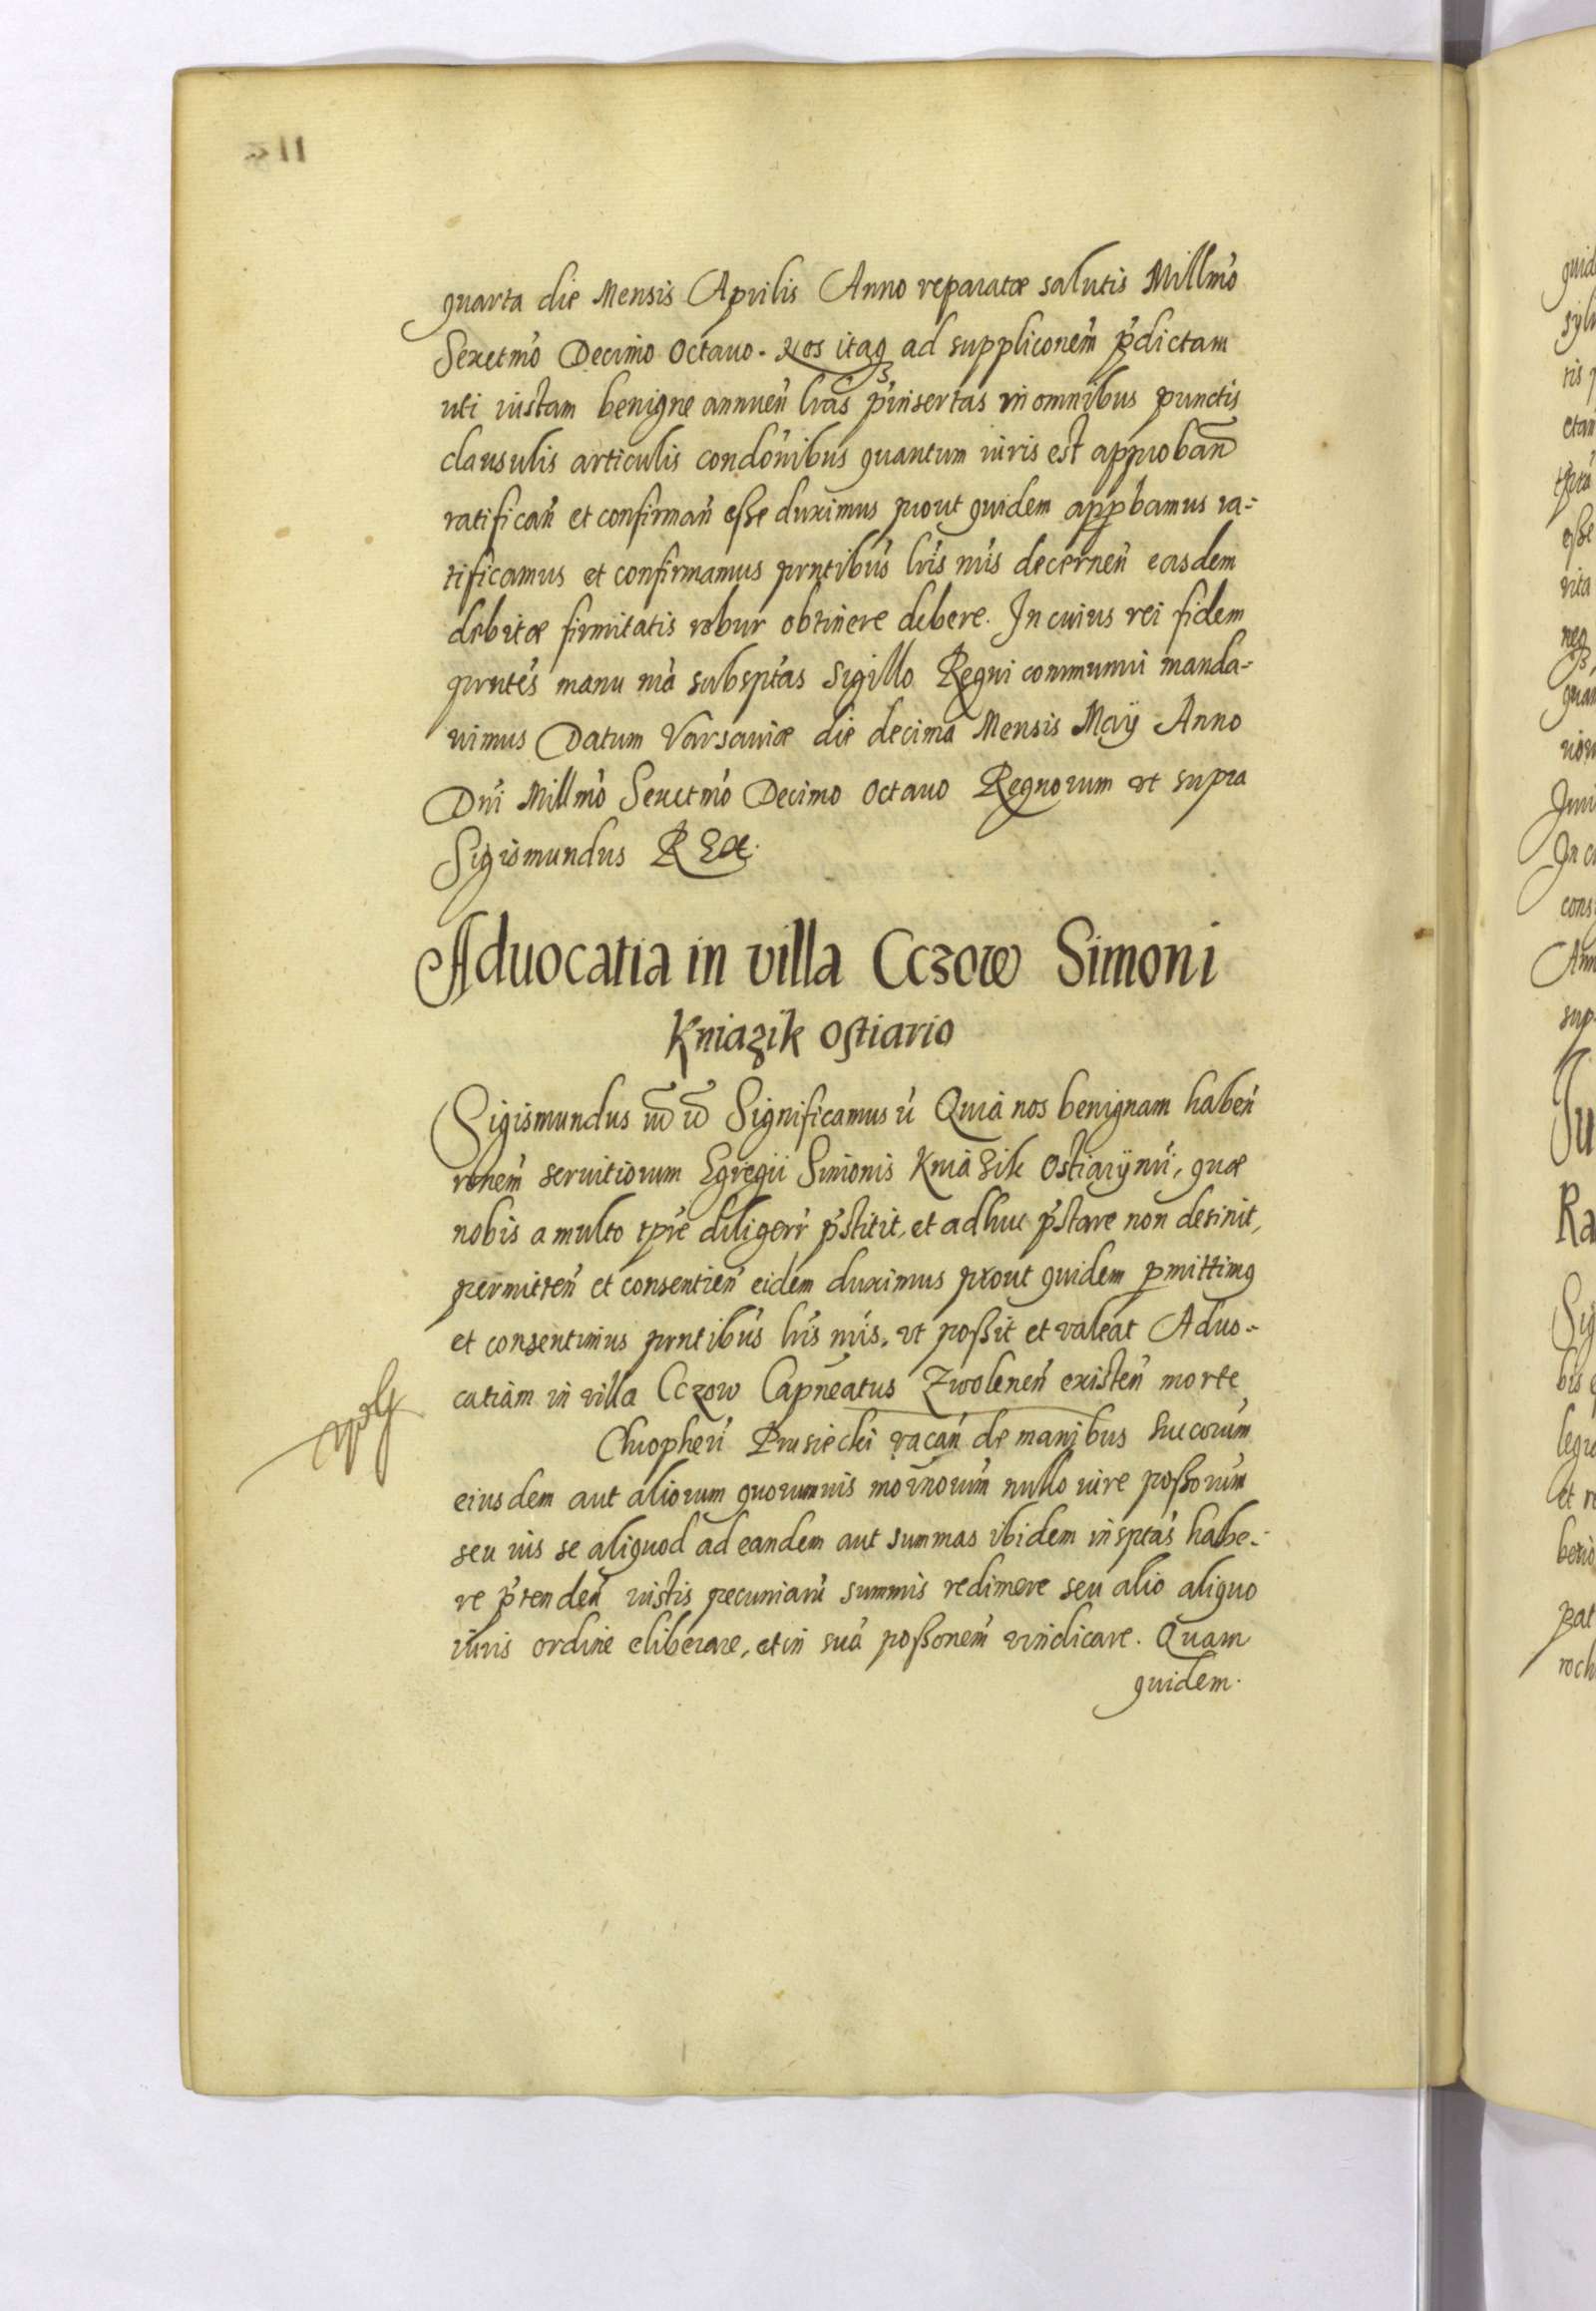 quarta die Mensis Aprilis Anno reparatæ salutis Millmo
Sexctmo Decimo Octauo. Nos itaq3 ad suppliconem pdictam
uti iustam benigne annuen lras pinsertas in omnibus punctis
clausulis articulis condonibus quantum iuris est approban
ratifican et confirman esse duximus prout quidem appbamus ra-
tificamus et confirmamus pntibus lris nris decernen easdem
debitæ firmitatis robur obtinere debere. In cuius rei fidem
pntes manu nra subsptas Sigillo Regni communiri manda-
uimus Datum Varsauiæ die decima Mensis Maÿ Anno
Dni Millmo Sexctmo Decimo Octauo Regnorum ut supra
Sigismundus REX.
Aduocatia in villa Cczow Simoni
Kniazik ostiario
Sigismundus Significamus Quia nos benignam haben
ronem seruitiorum Egregii Simonis Kniazik Ostiarÿ nri, quæ
nobis a multo tpre diligenr pstitit, et adhuc pstare non desinit,
permitten et consentien eidem duximus prout quidem pmittimq
et consentimus pntibus lris nris, ut possit et valeat Aduo-
catiam in villa Cczow Capneatus Zwolenen existen morte
Chropheri Prusiecki vacan de manibus Succorum
eiusdem aut aliorum quorumuis modrnorum nullo iure possorum
seu ius se aliquod ad eandem aut summas ibidem insptas habe-
re ptenden iustis pecuniaru summis redimere seu alio aliquo
iuris ordine eliberare, et in sua possonem vindicare. Quam
quidem.